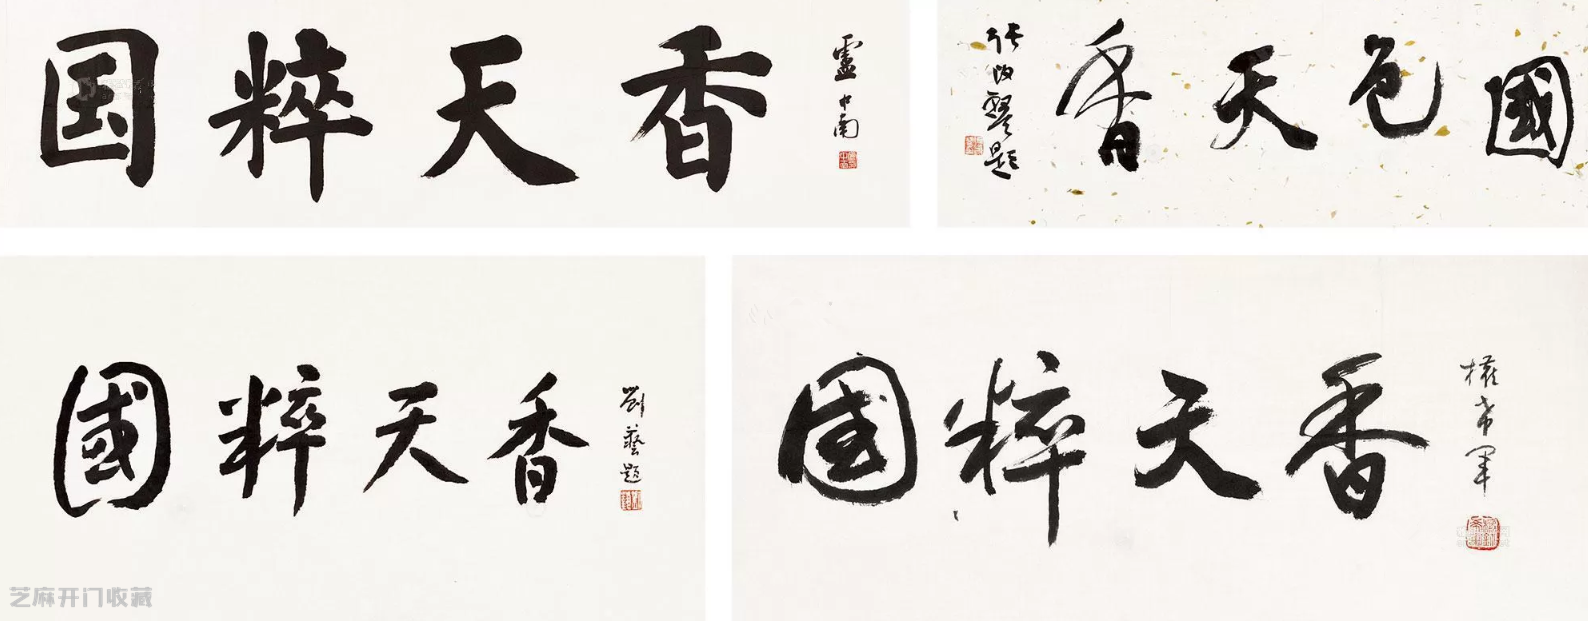 国粹天香
盧中南
國色天香
張改琴題
國粹天香
劉藝題
國粹天香
權希軍
芝麻开门收藏